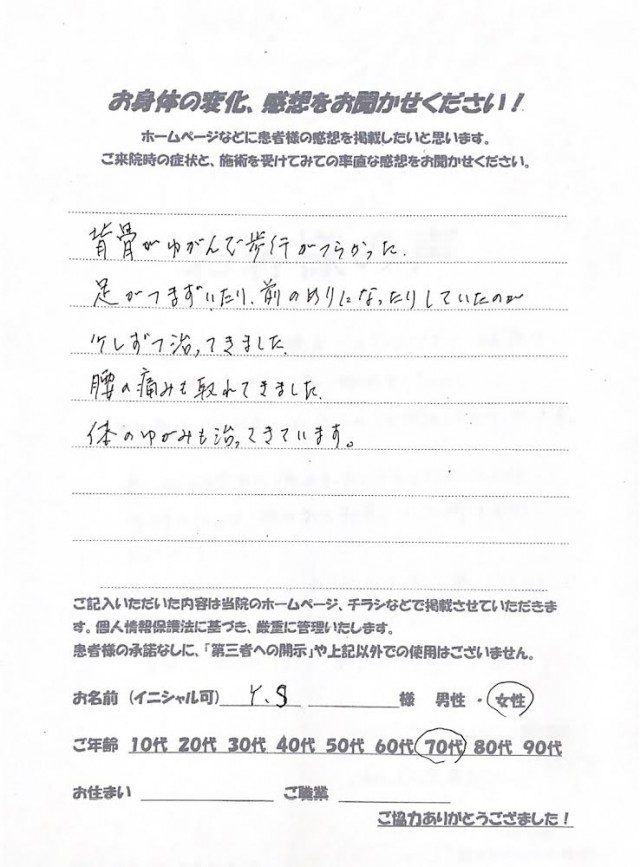 お身体の変化、感想をお聞かせください！
ホームページなどに患者様の感想を掲載したいと思います。
ご来院時の症状と、施術を受けてみての率直な感想をお聞かせください。
背骨がゆがんで歩行がつらかった.
足がつまずいたり、前のめりになったりしていたのが
少しずつ治ってきました.
腰の痛みも取れてきました.
体のゆがみも治ってきています。
ご記入いただいた内容は当院のホームページ、チラシなどで掲載させていただきま
す。個人情報保護法に基づき、厳重に管理いたします。
患者様の承諾なしに、「第三者への開示」や上記以外での使用はございません。
お名前（イニシャル可） Y.S 様 男性・女性
ご年齢 10代 20代 30代 40代 50代 60代 70代 80代 90代
お住まい ご職業
ご協力ありがとうござました！